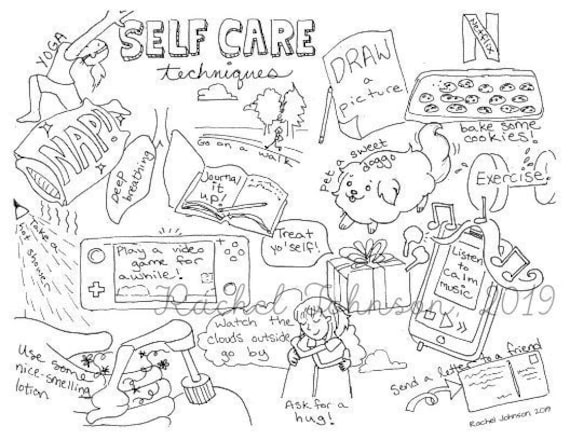 YOGA
SELF CARE
techniques
DRAW
a
picture
N
Netflix
NAP!
Deep
breathing
Go on a walk
Journal
it
up!
pet a sweet
doggo
bake some
cookies!
Exercise!
Take a
hot shower
Play a video
game for
awhile!
Treat
yo'self!
Listen
to
calm
music
Rachel Johnson 2019
Use some
nice-smelling
lotion
Watch the
clouds outside
go by
Ask for a
hug!
Send a letter to a friend
Rachel Johnson 2019